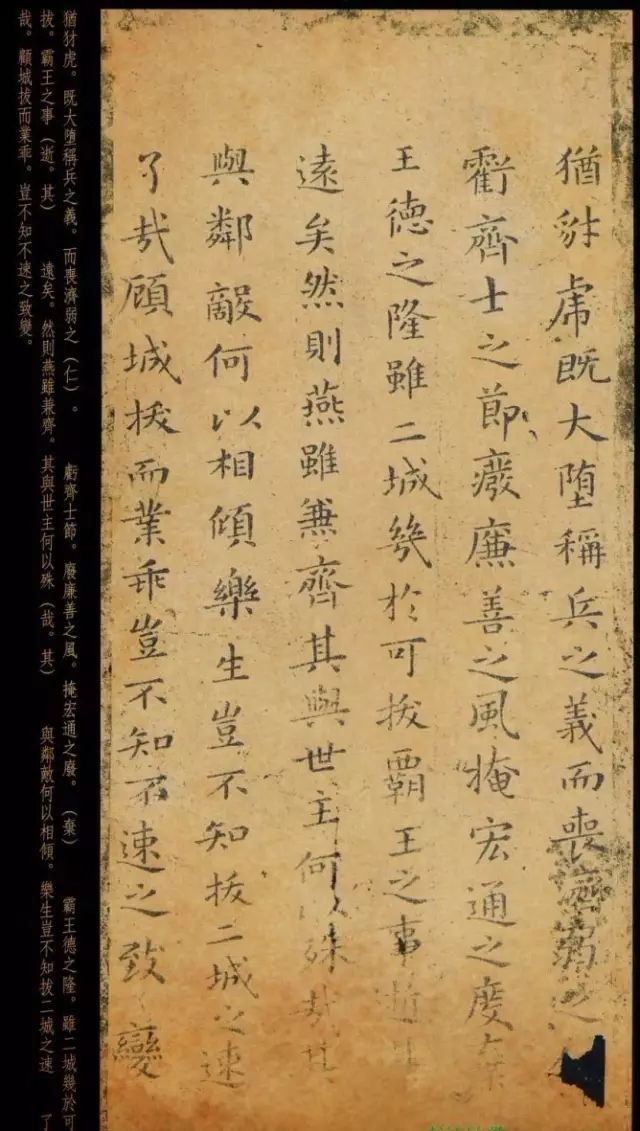 猶豺虎既大堕稱兵之義而喪濟弱之
虧齊士之節廢廉善之風掩宏通之度棄
王德之隆雖二城幾於可拔霸王之事逝其
遠矣然則燕雖兼齊其與世主何以殊哉其
與鄰敵何以相傾樂生豈不知拔二城之速
了哉顧城拔而業乖豈不知不速之致變
猶犲虎。既大堕稱兵之義。而喪濟弱之（仁）。 虧齊士節。廢廉善之風。掩宏通之廢。（棄） 霸王德之隆。雖二城幾於可
拔。霸王之事（逝。其） 遠矣。然則燕雖兼齊。其與世主何以殊（哉。其） 與鄰敵何以相傾。樂生豈不知拔二城之速 了
哉。顧城拔而業乖。豈不知不速之致變。